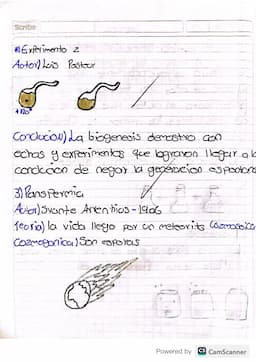 Scribe
Experimento 2
Autor) Luis Pasteur
Conclucion) La biogenesis demostro con
echos y experimentos que lograron llegar a la
conclucion de negar la generacion espontane
3) Panspermia
Autor) Svante Arrenhios - 1906
Teoria) la vida llego por un meteorito (cosmosoica
cosmogonica) Son esporas
Powered by CS CamScanner